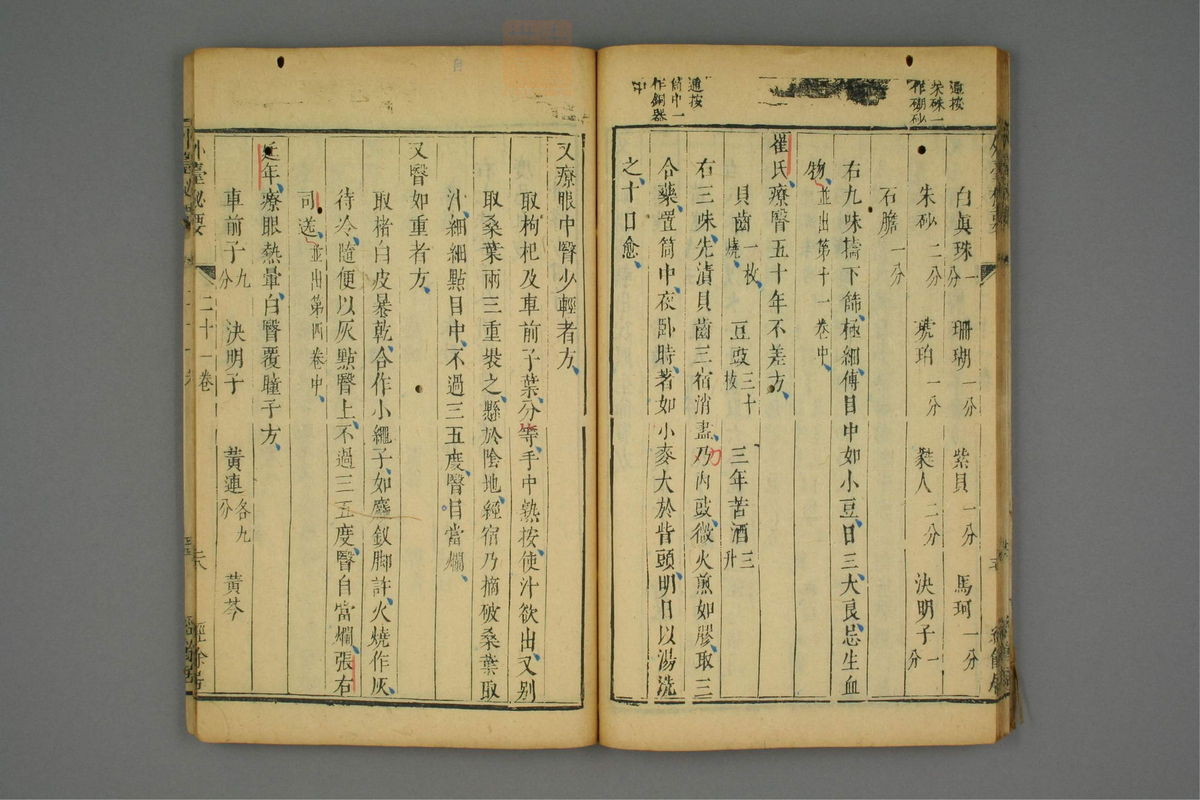 通按
朱硃一
作硇砂
通按
筒中一
作銅器
中
白眞珠一分 珊瑚一分 紫貝一分 馬珂一分
朱砂二分 琥珀一分 𣮈人二分 決明子一分
石膽一分
右九味擣下篩極細傅目中如小豆日三大良忌生血
物並出第十一卷中
崔氏療瞖五十年不差方
貝齒一枚燒 豆豉三十枚 三年苦酒三升
右三味先漬貝齒三宿消盡乃內豉微火煎如膠取三
合藥置筒中夜臥時著如小麥大於眥頭明日以湯洗
之十日愈
又療眼中瞖少輕者方
取枸杞及車前子葉分等手中熟挼使汁欲出又别
取桑葉兩三重裝之懸於陰地經宿乃摘破桑葉取
汁細細點目中不過三五度瞖自當爛
又瞖如重者方
取楮白皮暴乾合作小繩子如麤釵脚許火燒作灰
待冷隨便以灰點瞖上不過三五度瞖自當爛張右
司送並出第四卷中
延年療眼熱暈白瞖覆瞳子方
車前子九分 決明子 黃連各九分 黃芩
外臺祕要 二十一卷 經餘居